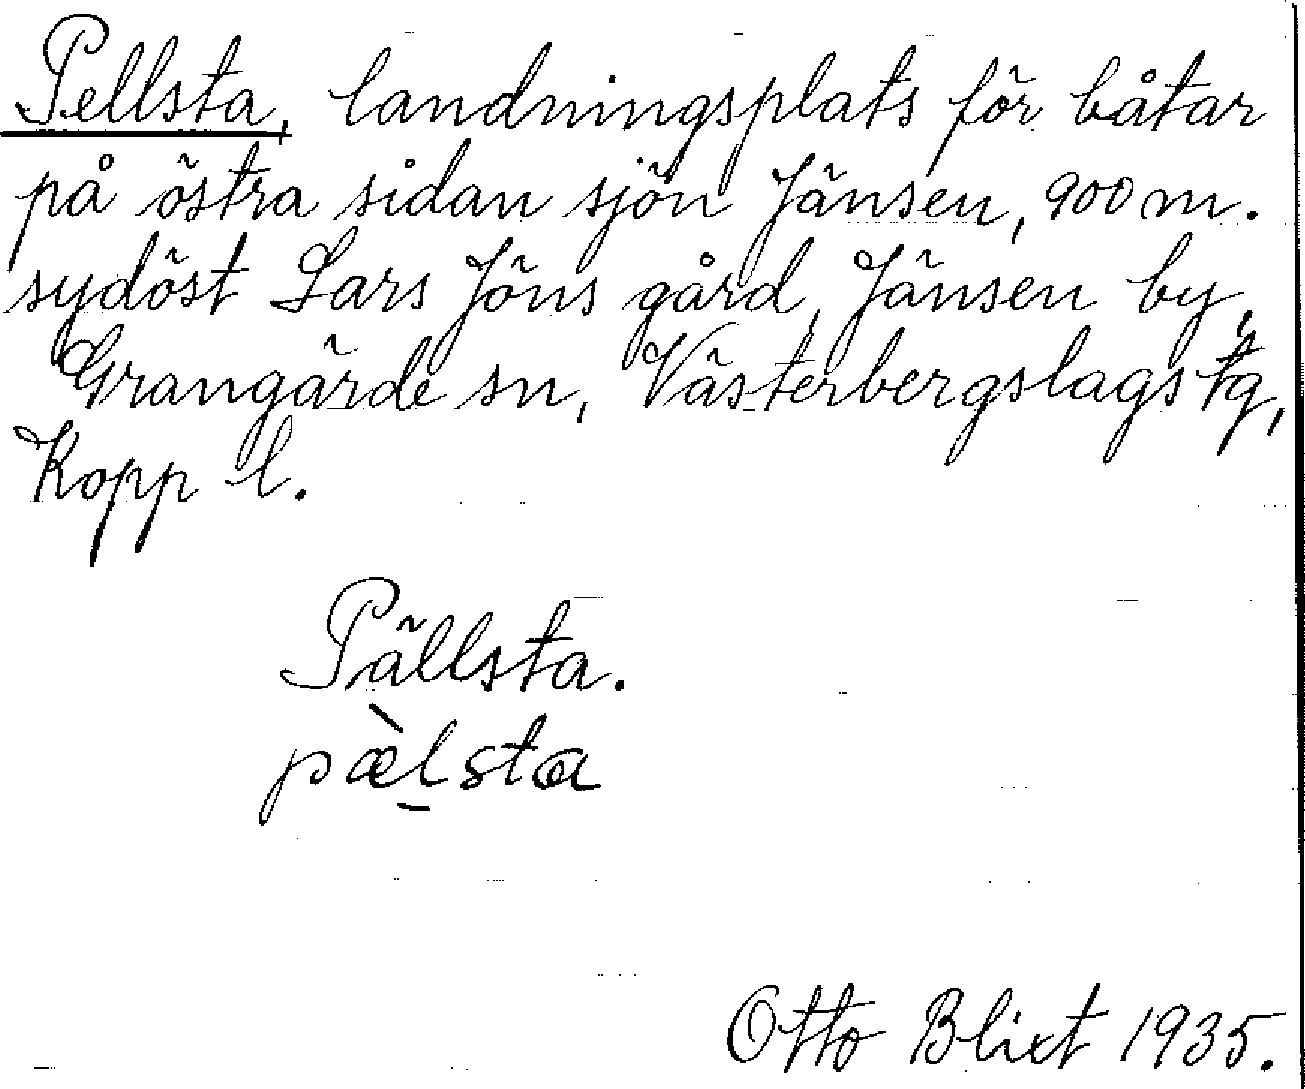 Pellsta, landningsplats för båtar
på östra sidan sjön Jänsen, 900 m.
sydöst Lars Jöns gård, Jänsen by,
Grangärde sn, Västerbergslags tg,
Kopp l.
Pällsta.
pæ̀l̠sta
Otto Blixt 1935.